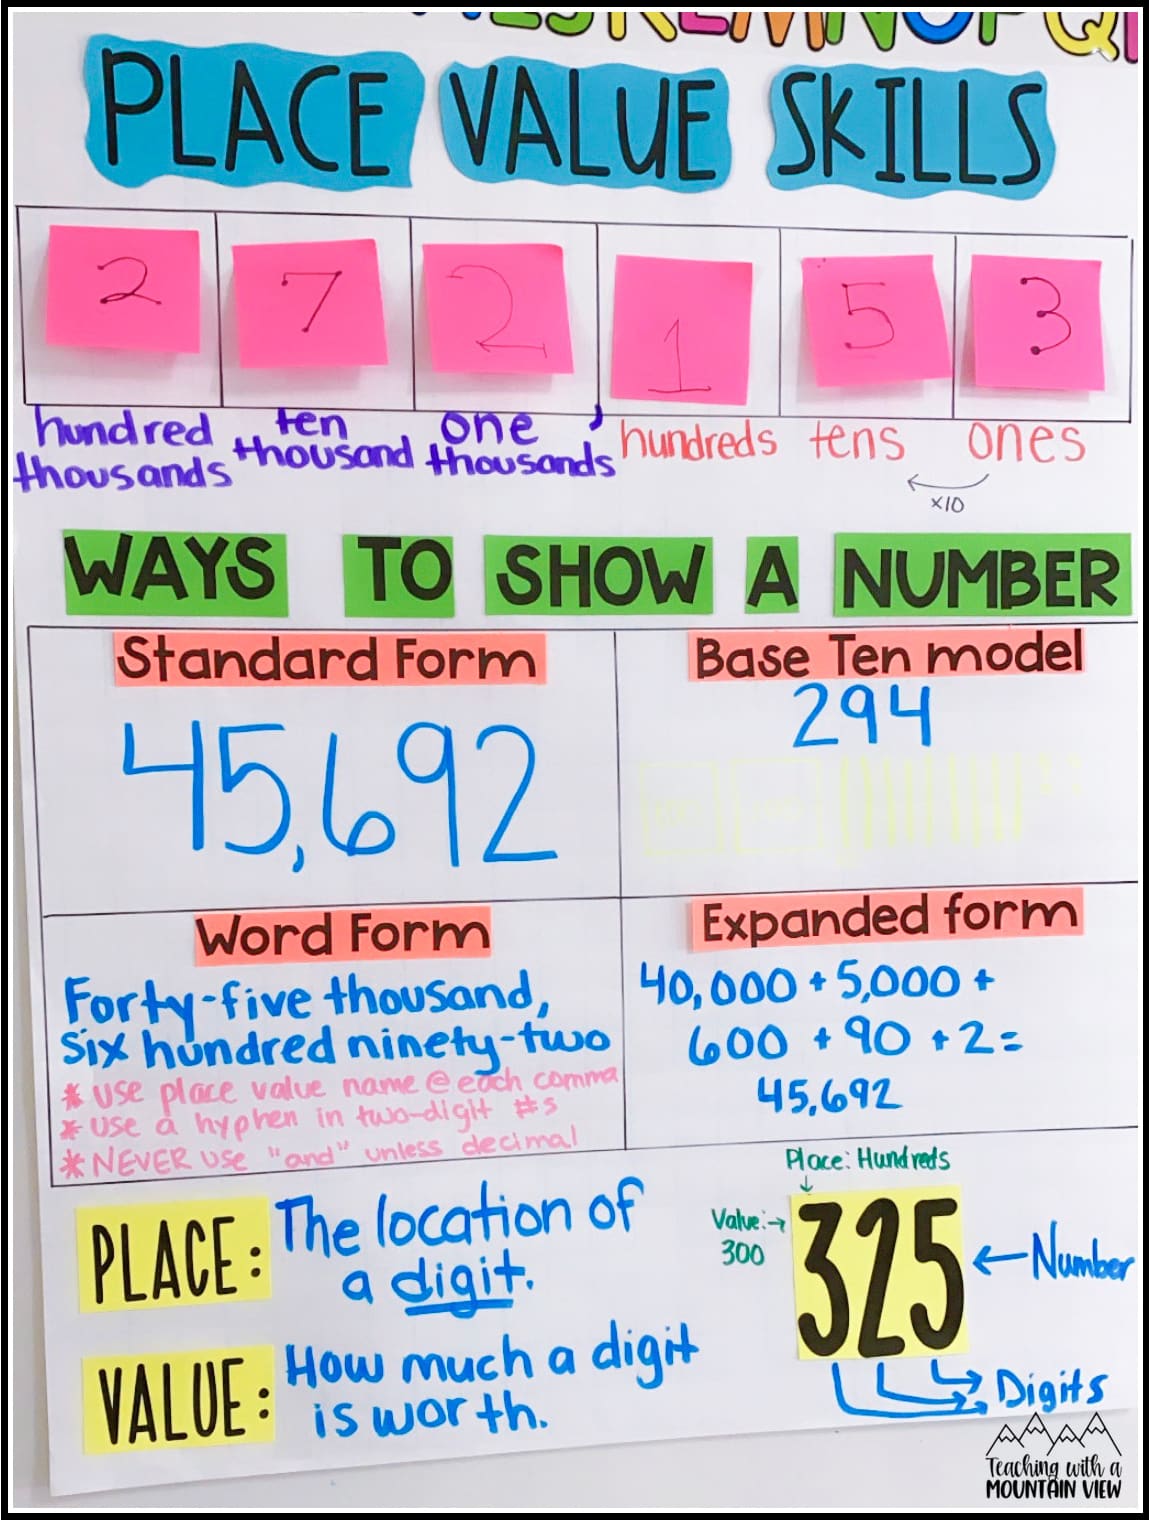 PLACE VALUE SKILLS
2 7 2 1 5 3
hundred thousands
ten thousand
one thousands
,
hundreds tens ones
x10
WAYS TO SHOW A NUMBER
Standard Form
45,692
Base Ten model
294
Word Form
Forty-five thousand,
six hundred ninety-two
* use place value name @ each comma
* use a hyphen in two-digit #s
* NEVER use "and" unless decimal
Expanded form
40,000 + 5,000 +
600 + 90 + 2 =
45,692
PLACE: The location of
a digit.
VALUE: How much a digit
is worth.
Place: Hundreds
Value:
300
325
Number
Digits
Teaching with a
MOUNTAIN VIEW